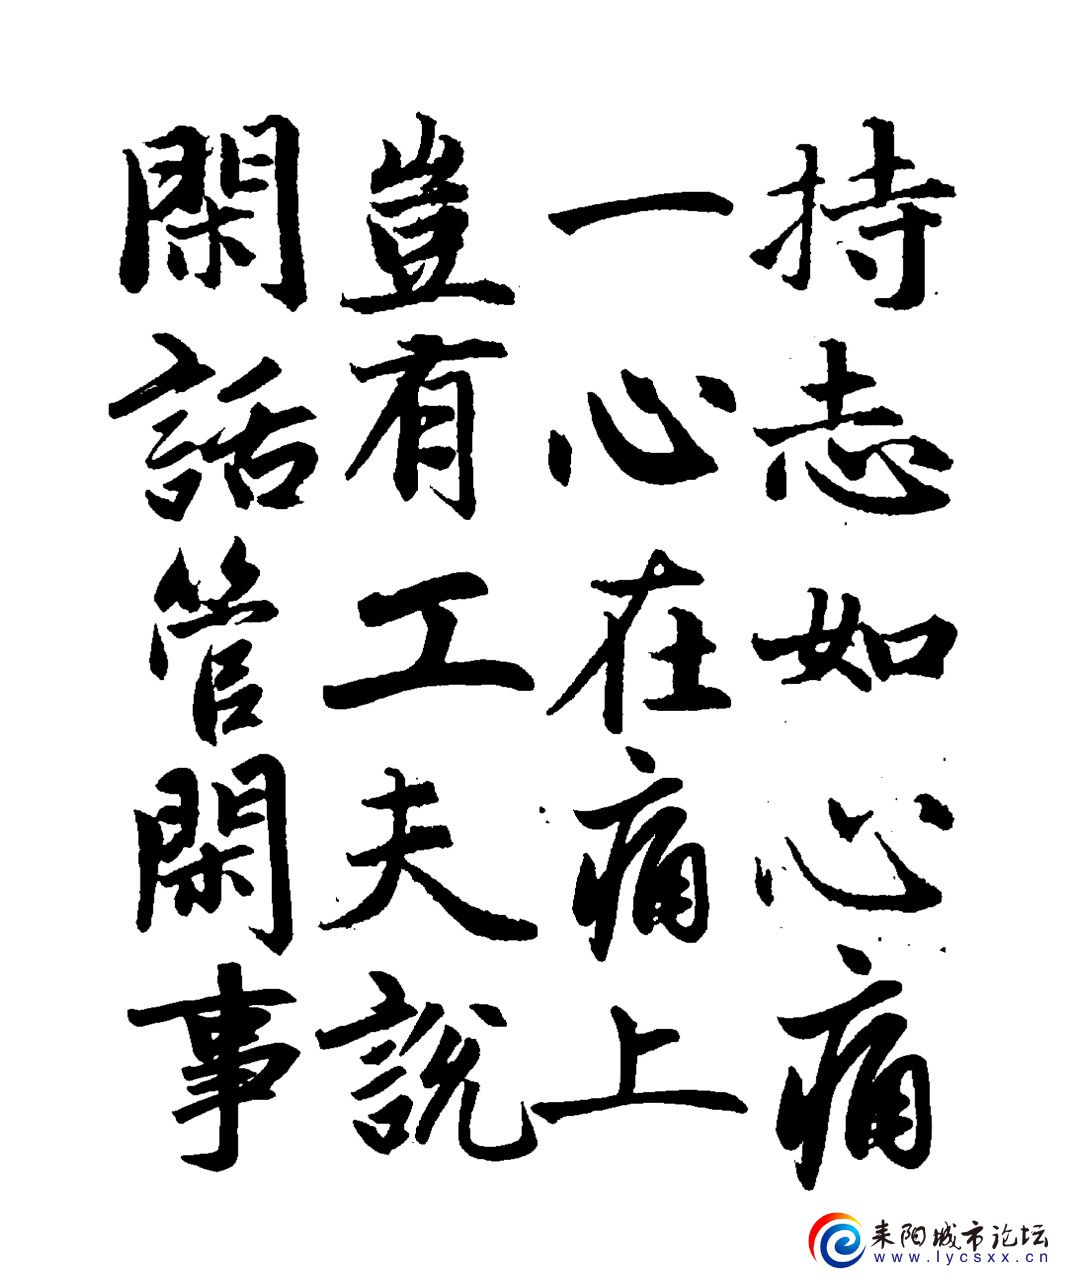 持志如心痛
一心在痛上
豈有工夫說
閑話管閑事
耒阳城市论坛
www.lycsxx.cn